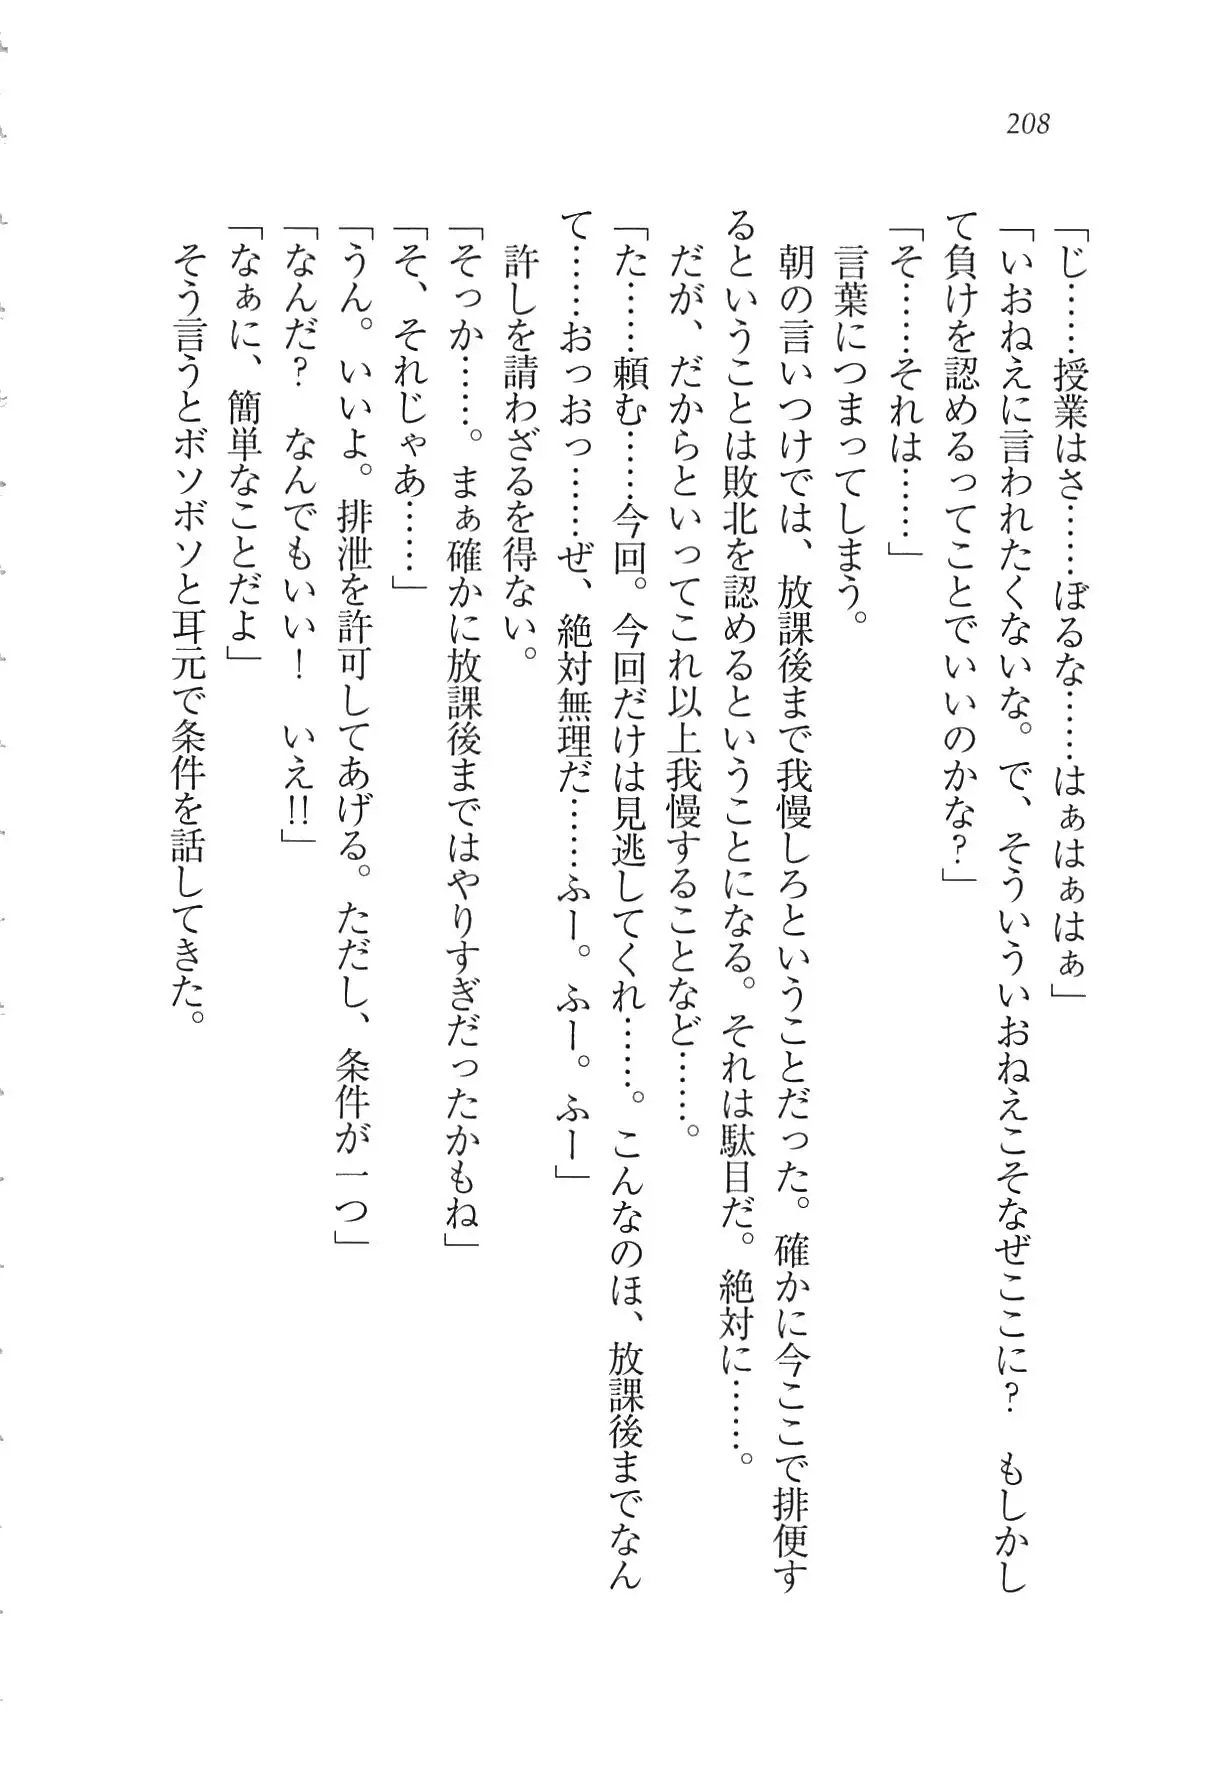 208
「じ……授業はさ……ぼるな……はぁはぁはぁ」
「いおねえに言われたくないな。で、そういういおねえこそなぜここに？　もしかし
て負けを認めるってことでいいのかな？」
「そ……それは……」
　言葉につまってしまう。
　朝の言いつけでは、放課後まで我慢しろということだった。確かに今ここで排便す
るということは敗北を認めるということになる。それは駄目だ。絶対に……。
　だが、だからといってこれ以上我慢することなど……。
「た……頼む……今回。今回だけは見逃してくれ……。こんなのほ、放課後までなん
て……おっおっ……ぜ、絶対無理だ……ふー。ふー。ふー」
　許しを請わざるを得ない。
「そっか……。まぁ確かに放課後まではやりすぎだったかもね」
「そ、それじゃあ……」
「うん。いいよ。排泄を許可してあげる。ただし、条件が一つ」
「なんだ？　なんでもいい！　いえ!!」
「なぁに、簡単なことだよ」
　そう言うとボソボソと耳元で条件を話してきた。